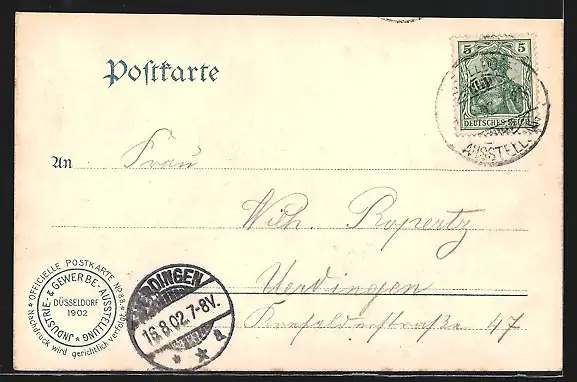 Postkarte
5 5
DEUTSCHES REICH
AUSSTELL
An Frau
Wilh. Ropertz
Uerdingen
Krefelderstraße 47
OFFICIELLE POSTKARTE No 68.
JNDUSTRIE- & GEWERBE-AUSSTELLUNG
DÜSSELDORF
1902
Nachdruck wird gerichtlich verfolgt
DINGEN
16.8.02.7-8V.
a